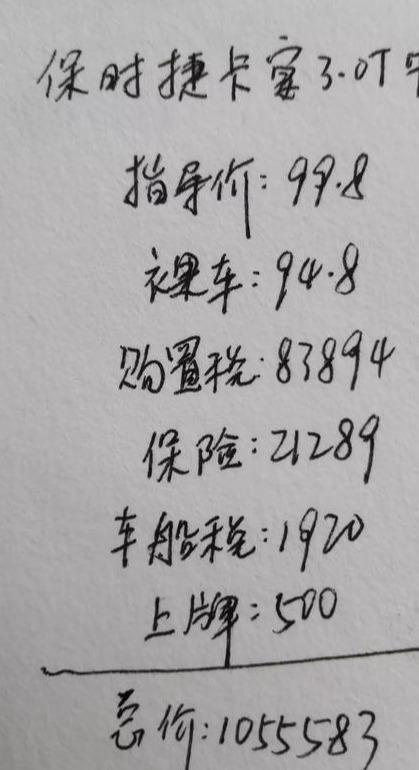 保时捷卡宴3.0T
指导价:99.8
裸车:94.8
购置税:83894
保险:21289
车船税:1920
上牌:500
总价:1055583